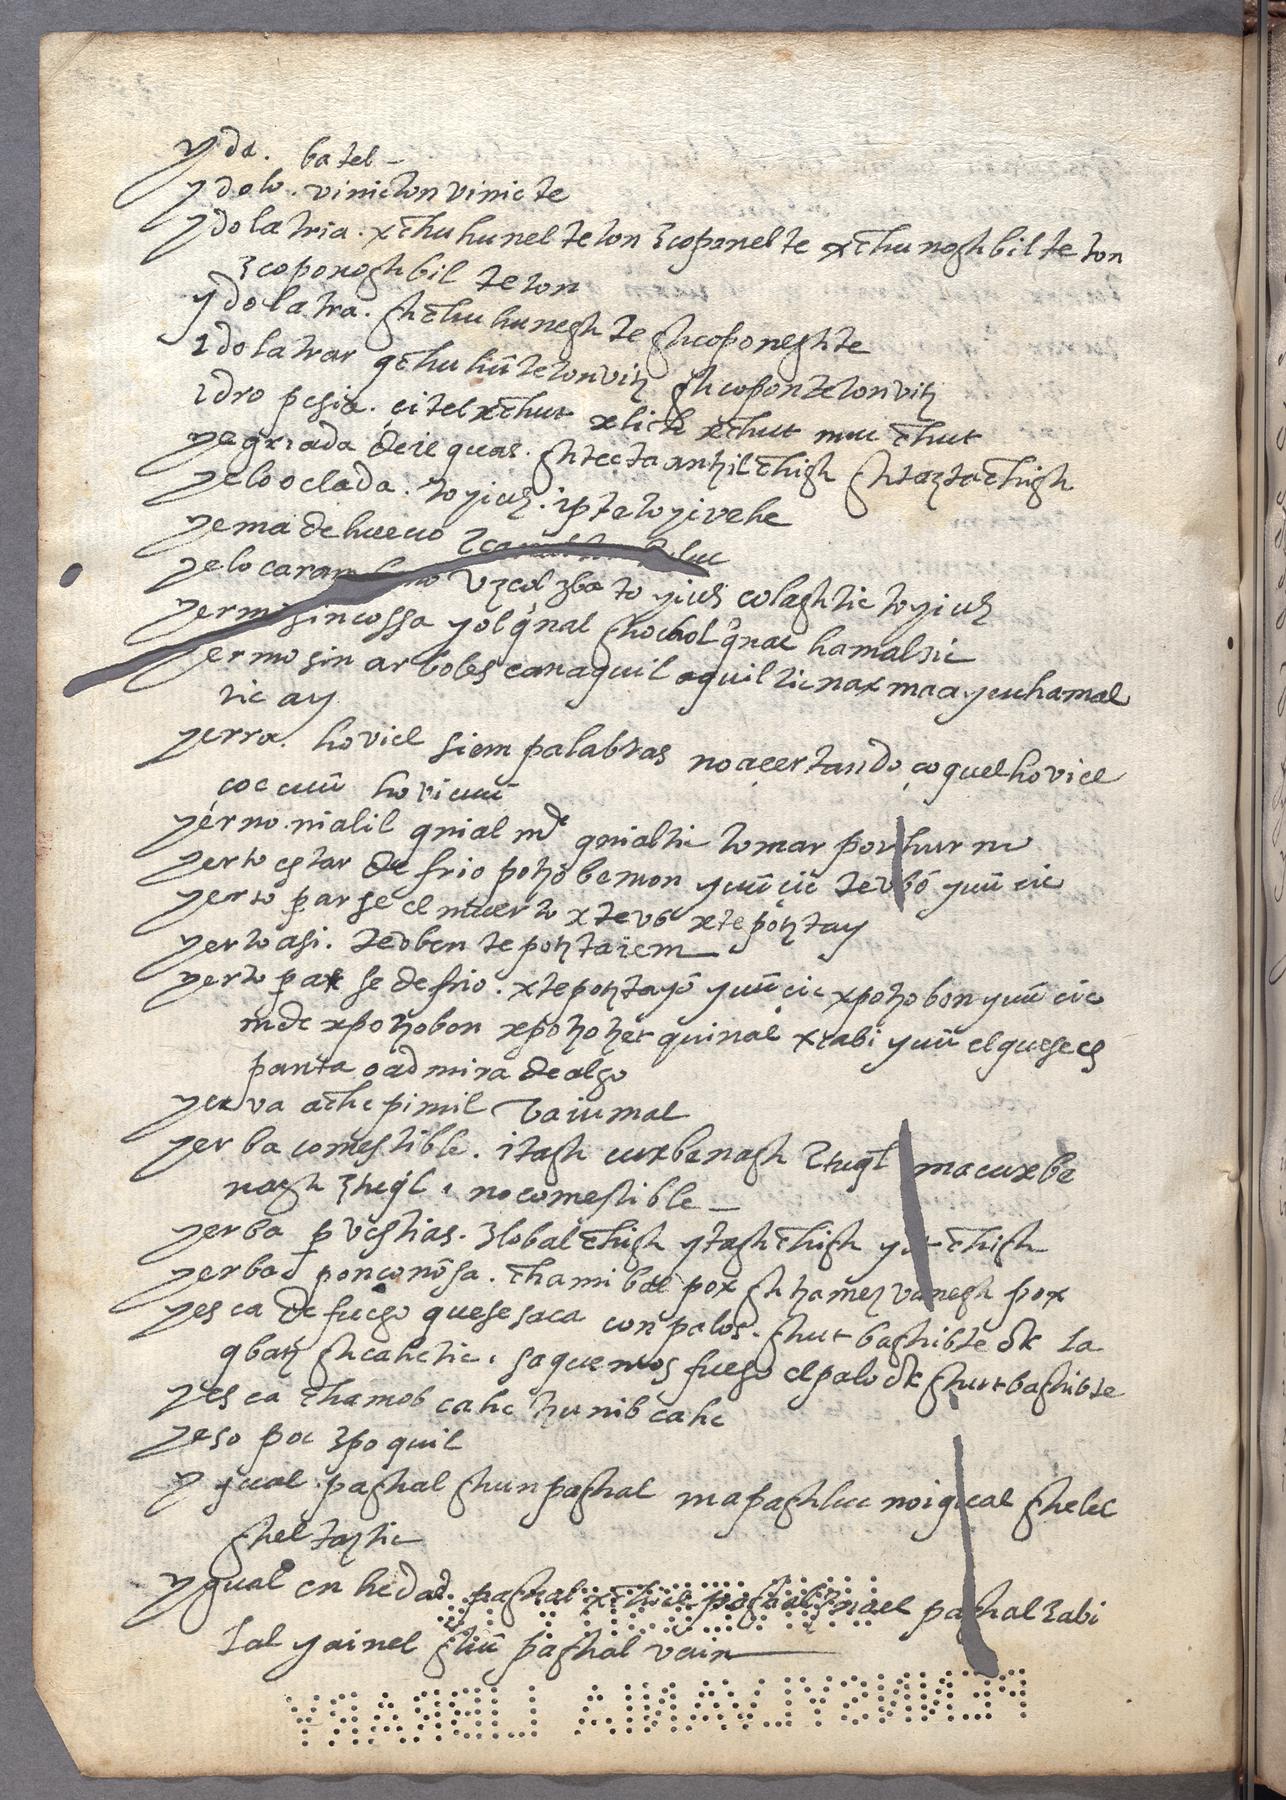 yda. batel
ydolo. vinicton vinic te
ydolatria. xchu hunel te ton zcoponel te xchu noghbil te ton
zcoponoghbil te ton
ydolatra. ghchu hunegh te ghcoponegh te
idolatrar qchu hū te ton vitz ghcopon te ton vitz
idropesia. çitel xchut xlich xchut muc chut
yegriada de ieguas. ghtecta antzil chigh ghtaztachigh
yelo o elada. toyiuh. ipte toyivehe
yema de hueuo
yelo vzcol zba to yiuh colaghtic toyiuh
sin cossa yolq̃nal ghochol q̃nal hamalsic
yermo sin arboles canaquil aquiltic nax maayeuhamal
tic ay
yerra. hovicl siem palabras no acertando, coquel hovicl
coc cuū hovicuū
yerno. nialil qnial md^e qnialtic tomar por hur ni
yerto estar de frio potzobemon yuū cic teubō yuū cic
yerto parse el muerto xteub xtepotztay
yerto asi. teoben tepotztaiem
yerto parse de frio. xtepotztayō yuū cic xpotzobon yuū cic
mde xpotzobon xpotzotzet quinal xcabi yuū el que se es
panta o admira de algo
yerva achc pimil vaiumal
yerba comestible. itagh cuxbenagh ztuq̃l macuxbe
nagh ztuq̃l. no comestible
yerba p vestias. zlobal chigh ytagh chigh chigh
yerba ponçoñosa. chamibal pox ghtzametzvanegh pox
yesca de fuego que se saca con palos. ghut baghibte dk la
qbatz ghcahctic. saquemos fuego el palo dk ghutbaghibte
yesca chamob cahc tzunib cahc
yeso poc zpoquil
ygual. paghal ghunpaghal mapaghluc no igual ghelel
gheltaztic
ygual en hedad. paghal paghal zabi
lal yainel ghuū paghal vain
PENNSYLVANIA LIBRARY